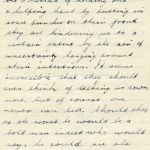 a helping hand by butting in
some bunches on their front
they are hindering us to a
certain extent by the air of
uncertainty hanging around
their intentions. It seems
incredible that they should
even think of letting us down
now, but of course one
never can tell. Should they
do the worst he would be a
bold man indeed who would
say he could see the